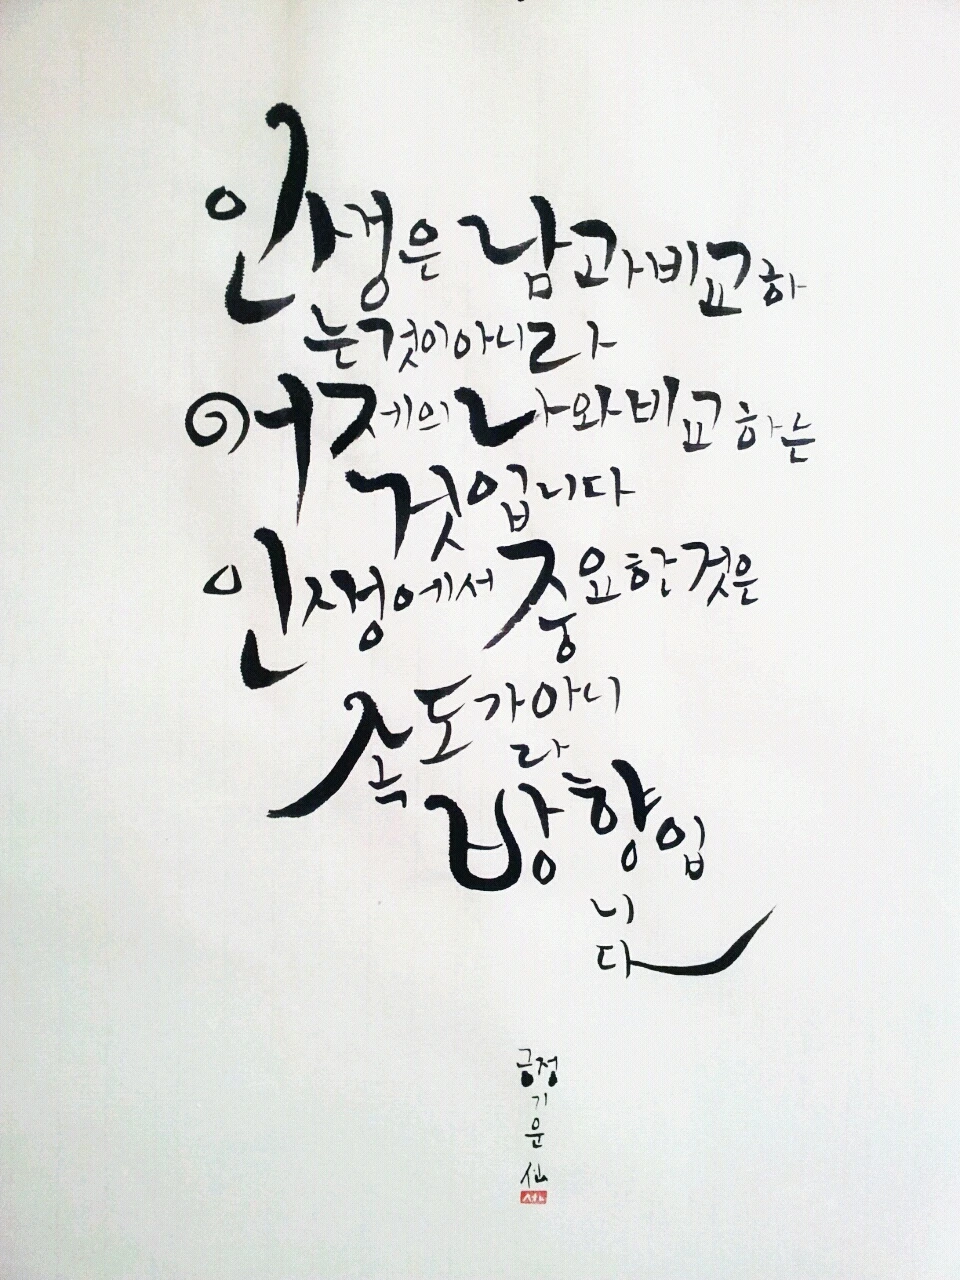 인생은 남과 비교하
는 것이 아니라
어제의 나와 비교하는
것입니다
인생에서 중요한 것은
속도가 아니
라
방향입
니
다
긍정
기
운
仙